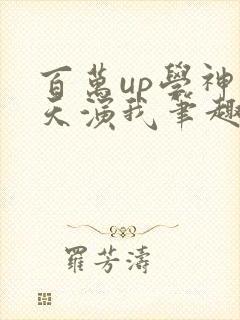 百萬up學神
天演我筆趣
羅芳濤